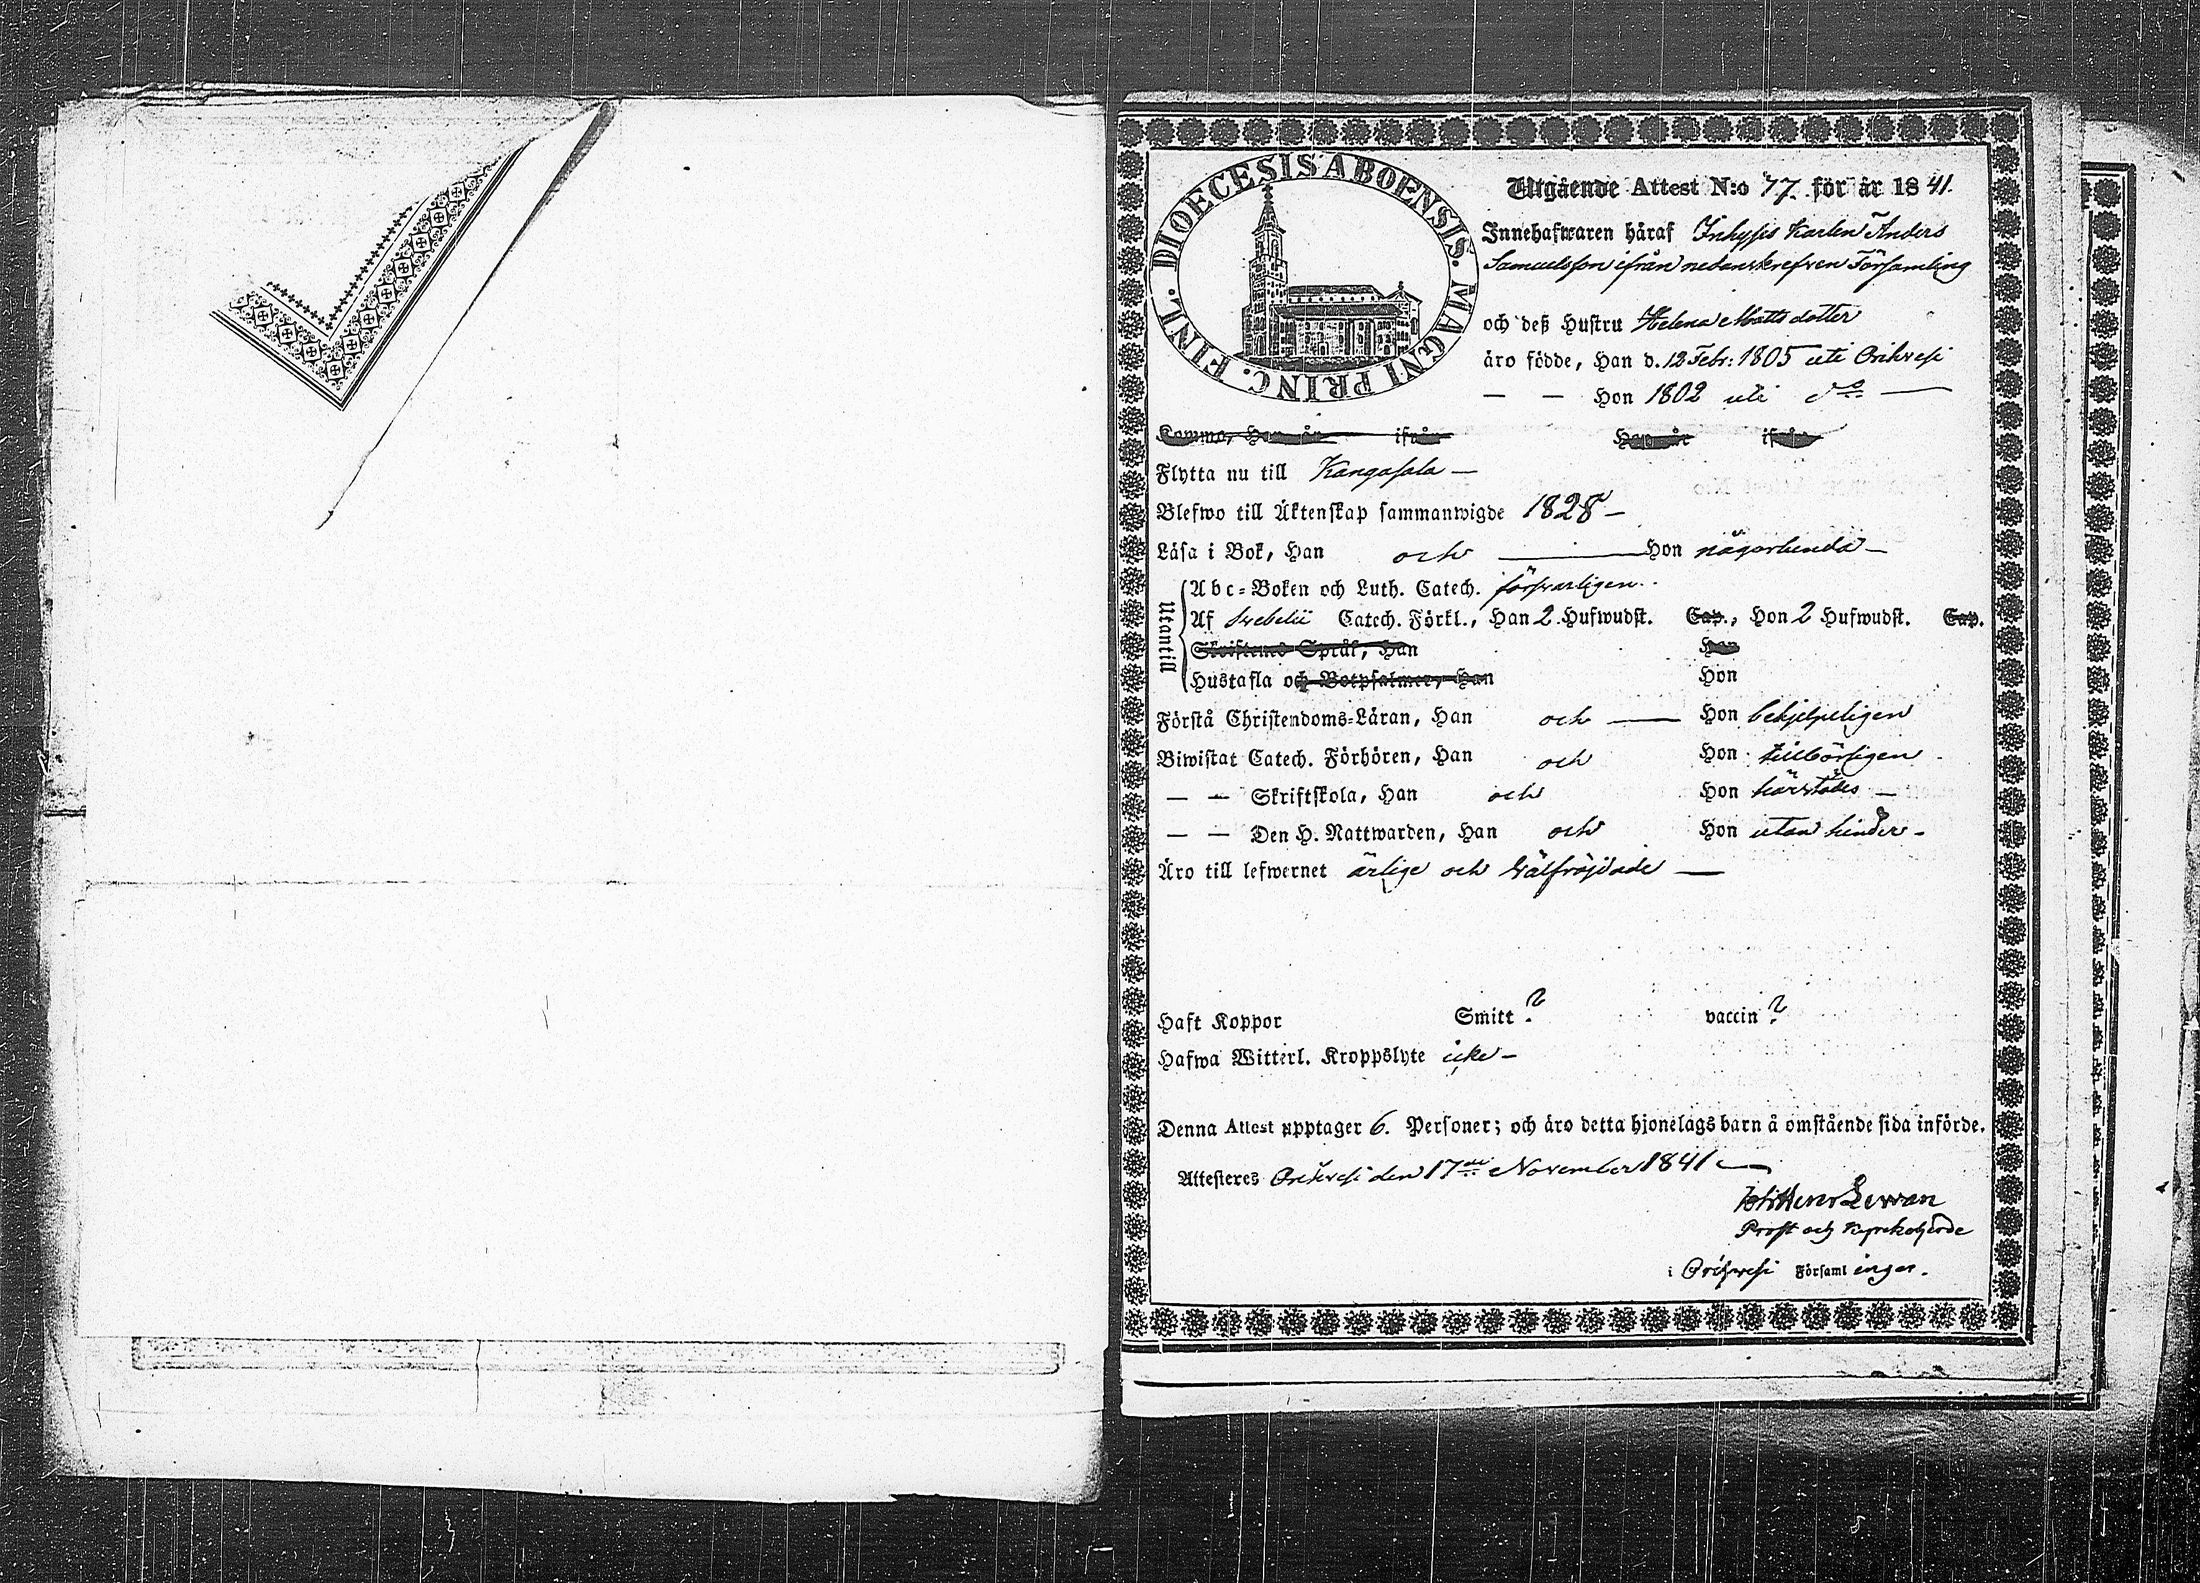 DIOECESIS ABOENSIS. MAGNI PRINC. FINL.
Utgående Attest N:o 77. för år 1841.
Innehafwaren häraf Inhyses Karlen Anders
Samuelsson ifrån nedanskrefven Församling
och deß Hustru Helena Mattsdotter
äro födde, Han d. 12 Febr: 1805 uti Orihvesi
— — Hon 1802 uti do —
Komma, Han år ifrån Hon år ifrån
Flytta nu till Kangasala —
Blefwo till Äktenskap sammanwigde 1828 —
Läsa i Bok, Han och — Hon någorlunda —
Utantill
Abc-Boken och Luth. Catech. försvarligen.
Af Svebelii Catech. Förkl., Han 2 Hufwudst. Cap., Hon 2 Hufwudst. Cap.
Skriftens Språk, Han Hon
Hustafla och Botpsalmer, Han Hon
Förstå Christendoms-Läran, Han och — Hon behjelpeligen
Biwistat Catech. Förhören, Han och Hon tillbörligen
— — Skriftskola, Han och Hon härstädes —
— — Den H. Nattwarden, Han och Hon utan hinder —
Äro till lefwernet ärlige och välfrejdade —
Haft Koppor Smitt? vaccin?
Hafwa Witterl. Kroppslyte icke —
Denna Attest upptager 6. Personer; och äro detta hjonelags barn å omstående sida införde.
Attesteres Orihvesi den 17de November 1841 —
Henr
Prost och Kyrkoherde
i Orihvesi Församlingar.